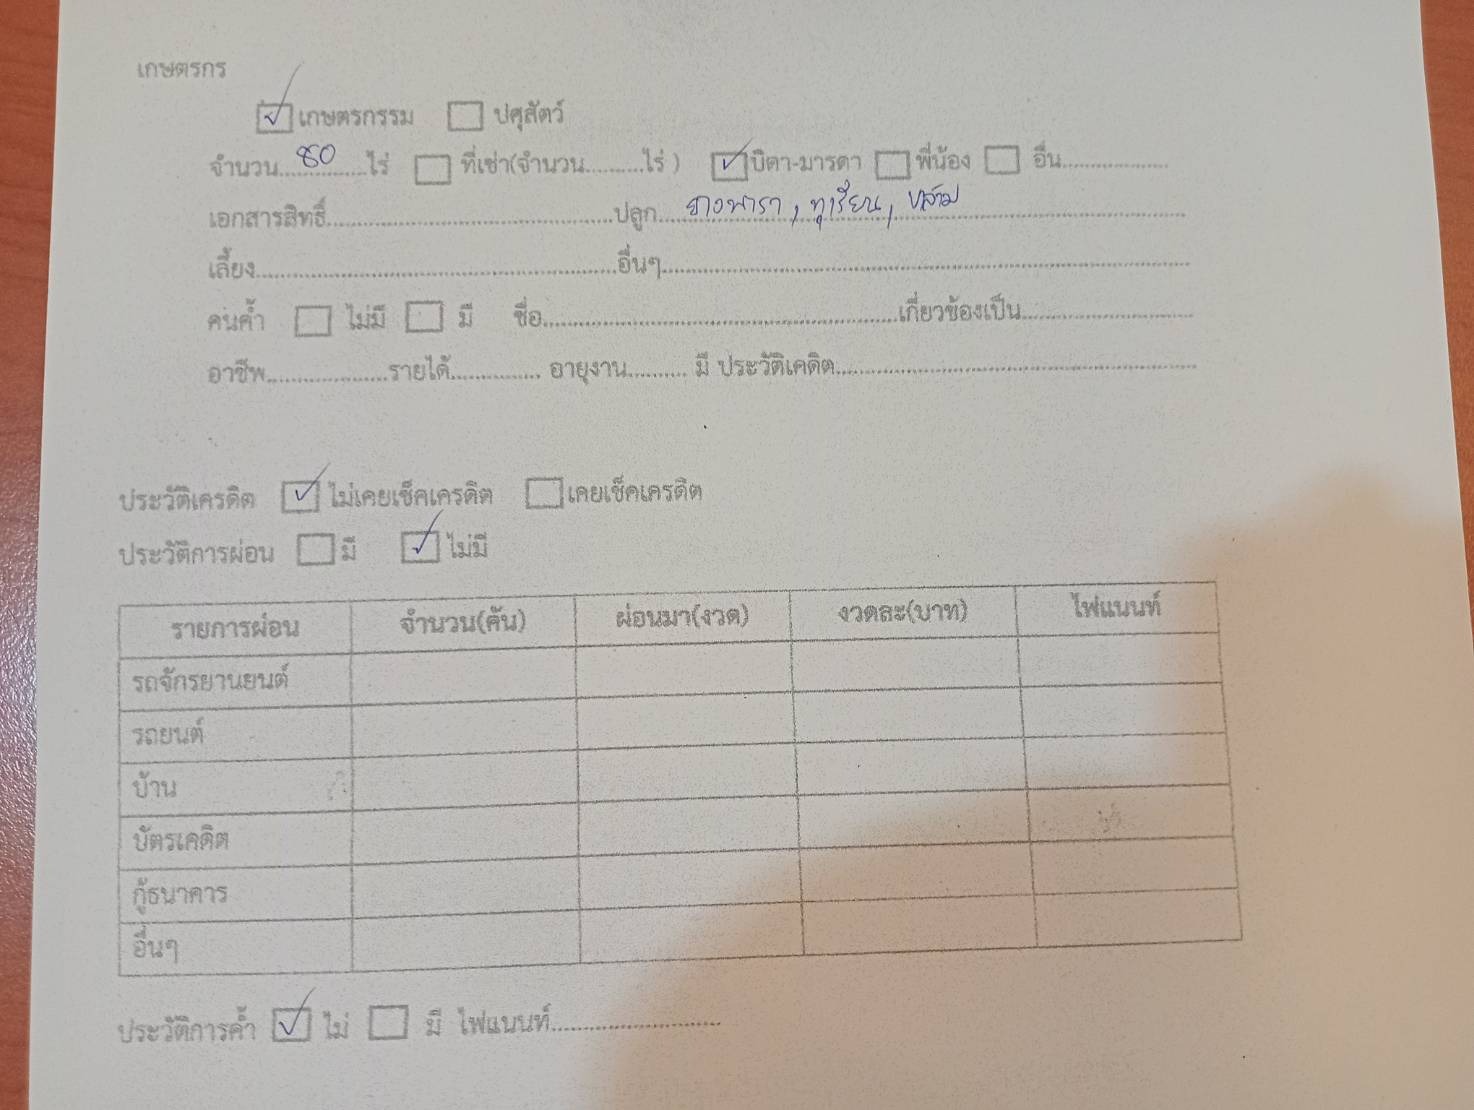 เกษตรกร
☑ เกษตรกรรม ☐ ปศุสัตว์
จำนวน....80....ไร่ ☐ ที่เช่า(จำนวน..........ไร่ ) ☑ บิดา-มารดา ☐ พี่น้อง ☐ อื่น..................
เอกสารสิทธิ์..................................................ปลูก....ยางพารา, ทุเรียน, ปาล์ม..................
เลี้ยง..................................................อื่นๆ..................................................
คนค้ำ ☐ ไม่มี ☐ มี ชื่อ..................................................เกี่ยวข้องเป็น..............................
อาชีพ....................รายได้............... อายุงาน.......... มี ประวัติเคดิต..................................................
ประวัติเครดิต ☑ ไม่เคยเช็คเครดิต ☐ เคยเช็คเครดิต
ประวัติการผ่อน ☐ มี ☑ ไม่มี
รายการผ่อน จำนวน(คัน) ผ่อนมา(งวด) งวดละ(บาท) ไฟแนนท์
รถจักรยานยนต์
รถยนต์
บ้าน
บัตรเคดิต
กู้ธนาคาร
อื่นๆ
ประวัติการค้ำ ☑ ไม่ ☐ มี ไฟแนนท์..............................